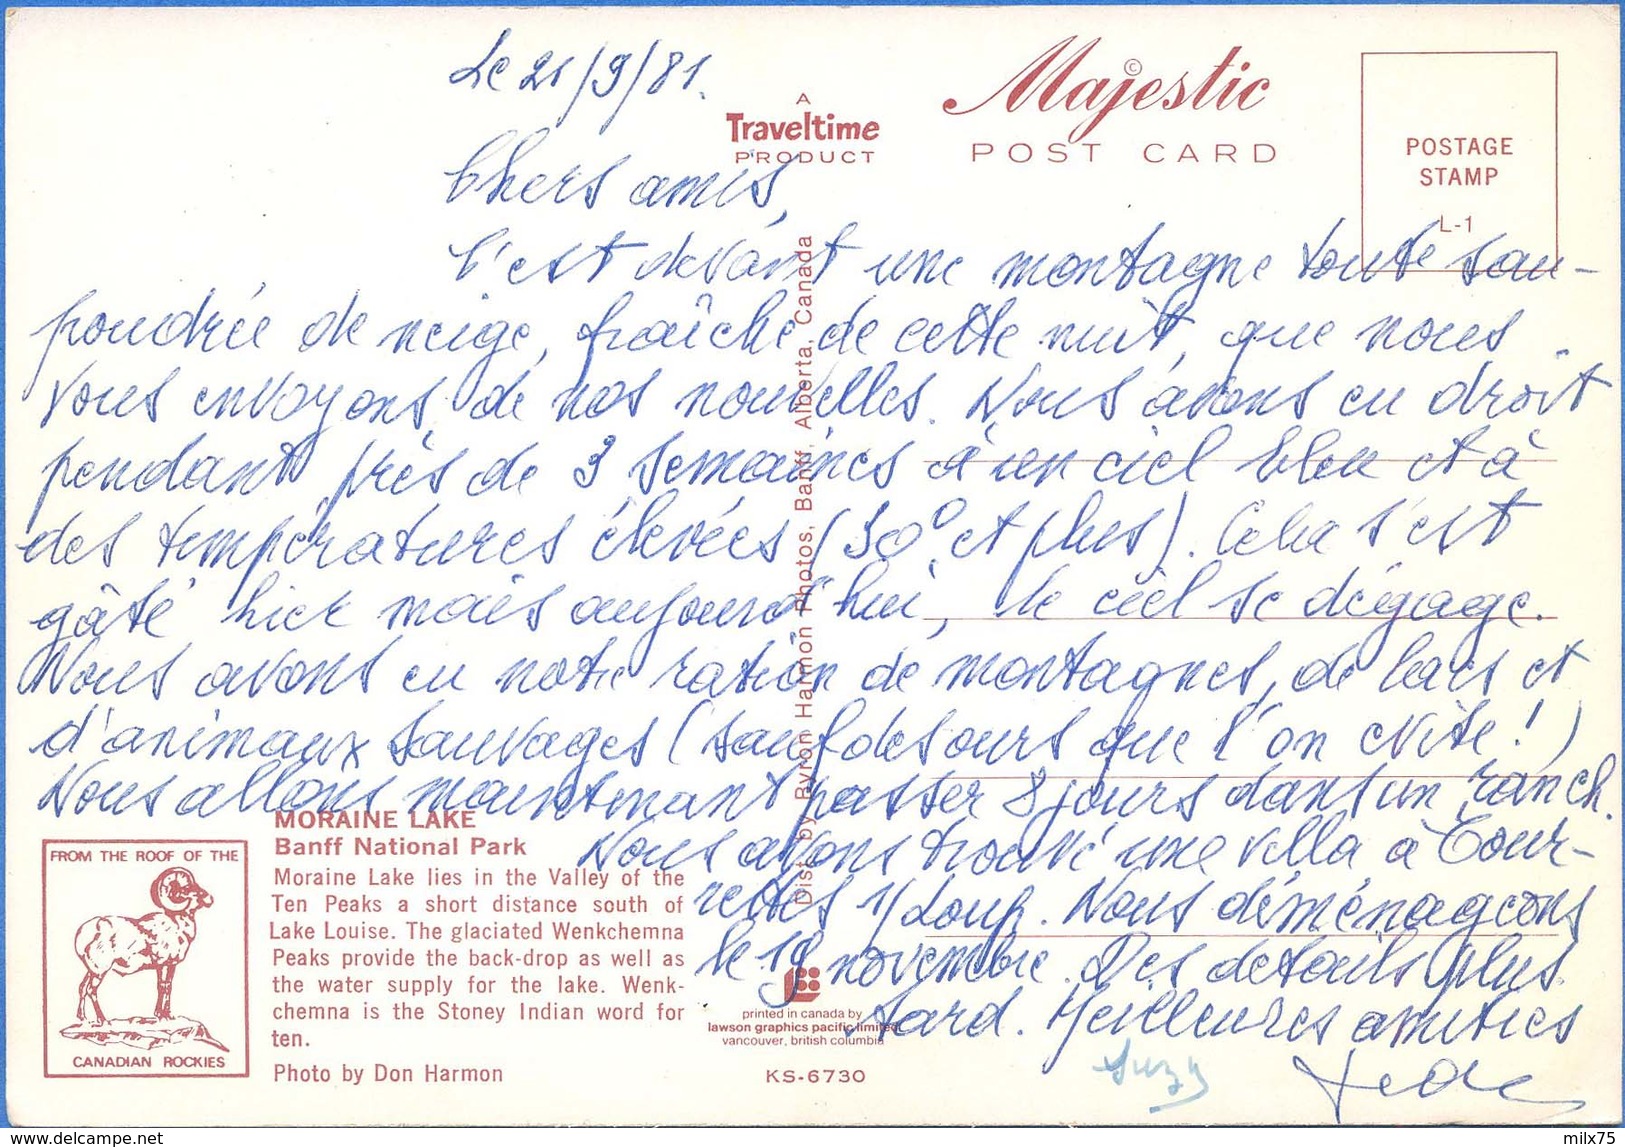 Le 21/9/81.
A
Traveltime
PRODUCT
Majestic
©
POST CARD
POSTAGE
STAMP
L-1
Chers amis,
C'est devant une montagne toute sau-
poudrée de neige, fraîche de cette nuit, que nous
vous envoyons de nos nouvelles. Nous avons eu droit
pendant près de 3 semaines à un ciel bleu et à
des températures élevées (30° et plus). Cela s'est
gâté hier mais aujourd'hui, le ciel se dégage.
Nous avons eu notre ration de montagnes, de lacs et
d'animaux sauvages (sauf des ours que l'on évite!)
Nous allons maintenant passer 8 jours dans un ranch.
Nous avons trouvé une villa à Tour-
rettes s/Loup. Nous déménageons
le 19 novembre. Des détails plus
tard. Meilleures amitiés
Suzy
Dist. by Byron Harmon Photos, Banff, Alberta, Canada
FROM THE ROOF OF THE
CANADIAN ROCKIES
MORAINE LAKE
Banff National Park
Moraine Lake lies in the Valley of the
Ten Peaks a short distance south of
Lake Louise. The glaciated Wenkchemna
Peaks provide the back-drop as well as
the water supply for the lake. Wenk-
chemna is the Stoney Indian word for
ten.
Photo by Don Harmon
printed in canada by
lawson graphics pacific limited
vancouver, british columbia
KS-6730
www.delcampe.net
milx75